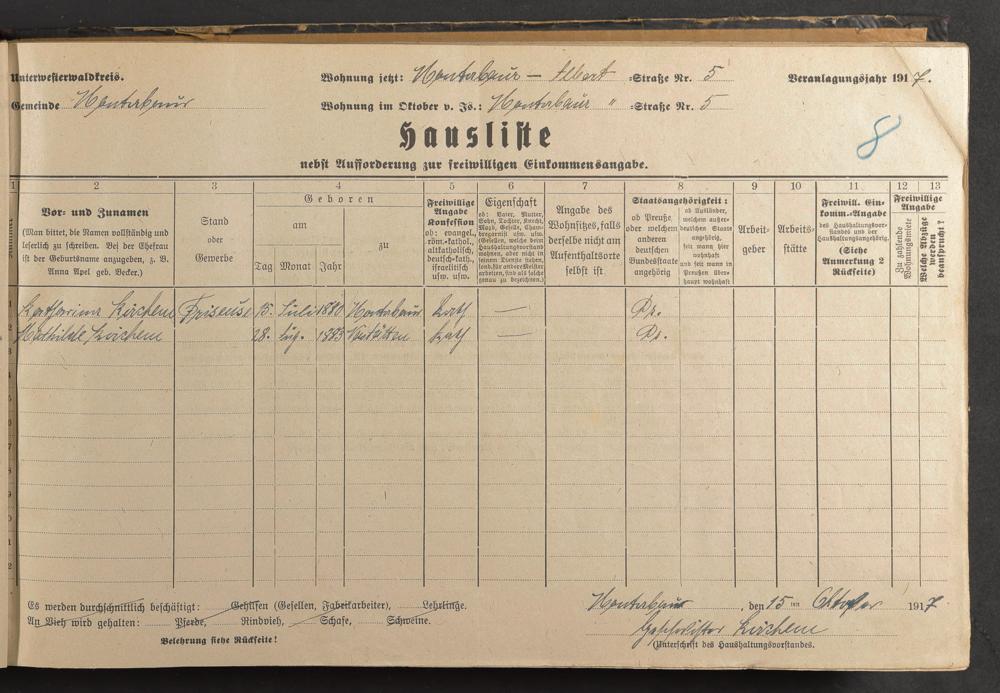 Unterwesterwaldkreis.
Wohnung jetzt: Montabaur — Albert -Straße Nr. 5
Veranlagungsjahr 1917.
Gemeinde Montabaur
Wohnung im Oktober v. Js.: Montabaur " -Straße Nr. 5
8
Hausliste
nebst Aufforderung zur freiwilligen Einkommensangabe.
1 2 3 4 5 6 7 8 9 10 11 12 13
Vor- und Zunamen
(Man bittet, die Namen vollständig und
leserlich zu schreiben. Bei der Ehefrau
ist der Geburtsname anzugeben, z. B.
Anna Apel geb. Becker.)
Stand
oder
Gewerbe
Geboren
am
zu
Tag Monat Jahr
Freiwillige
Angabe
Konfession
ob: evangel.,
röm.-kathol.,
altkatholisch,
deutsch-kath.,
israelitisch
usw. usw.
Eigenschaft
ob: Vater, Mutter,
Sohn, Tochter, Knecht,
Magd, Geselle, Cham-
bregarnist usw. usw.
(Gesellen, welche beim
Haushaltungsvorstand
wohnen, aber nicht in
seinem Lohn stehen,
sond. für andere Meister
arbeiten, sind als solche
genau zu bezeichnen.)
Angabe des
Wohnsitzes, falls
derselbe nicht am
Aufenthaltsorte
selbst ist
Staatsangehörigkeit:
ob Preuße
oder welchem
anderen
deutschen
Bundesstaate
angehörig
ob Ausländer,
welchem außer-
deutschen Staate
angehörig,
seit wann hier
wohnhaft
und seit wann in
Preußen über-
haupt wohnhaft
Arbeit-
geber
Arbeits-
stätte
Freiwill. Ein-
komm.-Angabe
des Haushaltungsvor-
standes und der
Haushaltungsangehörig.
(Siehe
Anmerkung 2
Rückseite)
Freiwillige
Angabe
Zu zahlende
Wohnungsmiete
Welche Abzüge
werden
beansprucht?
1 Katharina Kirchem Friseuse 15. Juli 1880 Montabaur kath — Pr.
2 Mathilde Kirchem 28. 1883 kath — Pr.
3
4
5
6
7
8
9
Es werden durchschnittlich beschäftigt: Gehilfen (Gesellen, Fabrikarbeiter), Lehrlinge.
An Vieh wird gehalten: Pferde, Rindvieh, Schafe, Schweine.
Belehrung siehe Rückseite!
Montabaur, den 15 ten Oktober 1917
Geschwister Kirchem
(Unterschrift des Haushaltungsvorstandes.